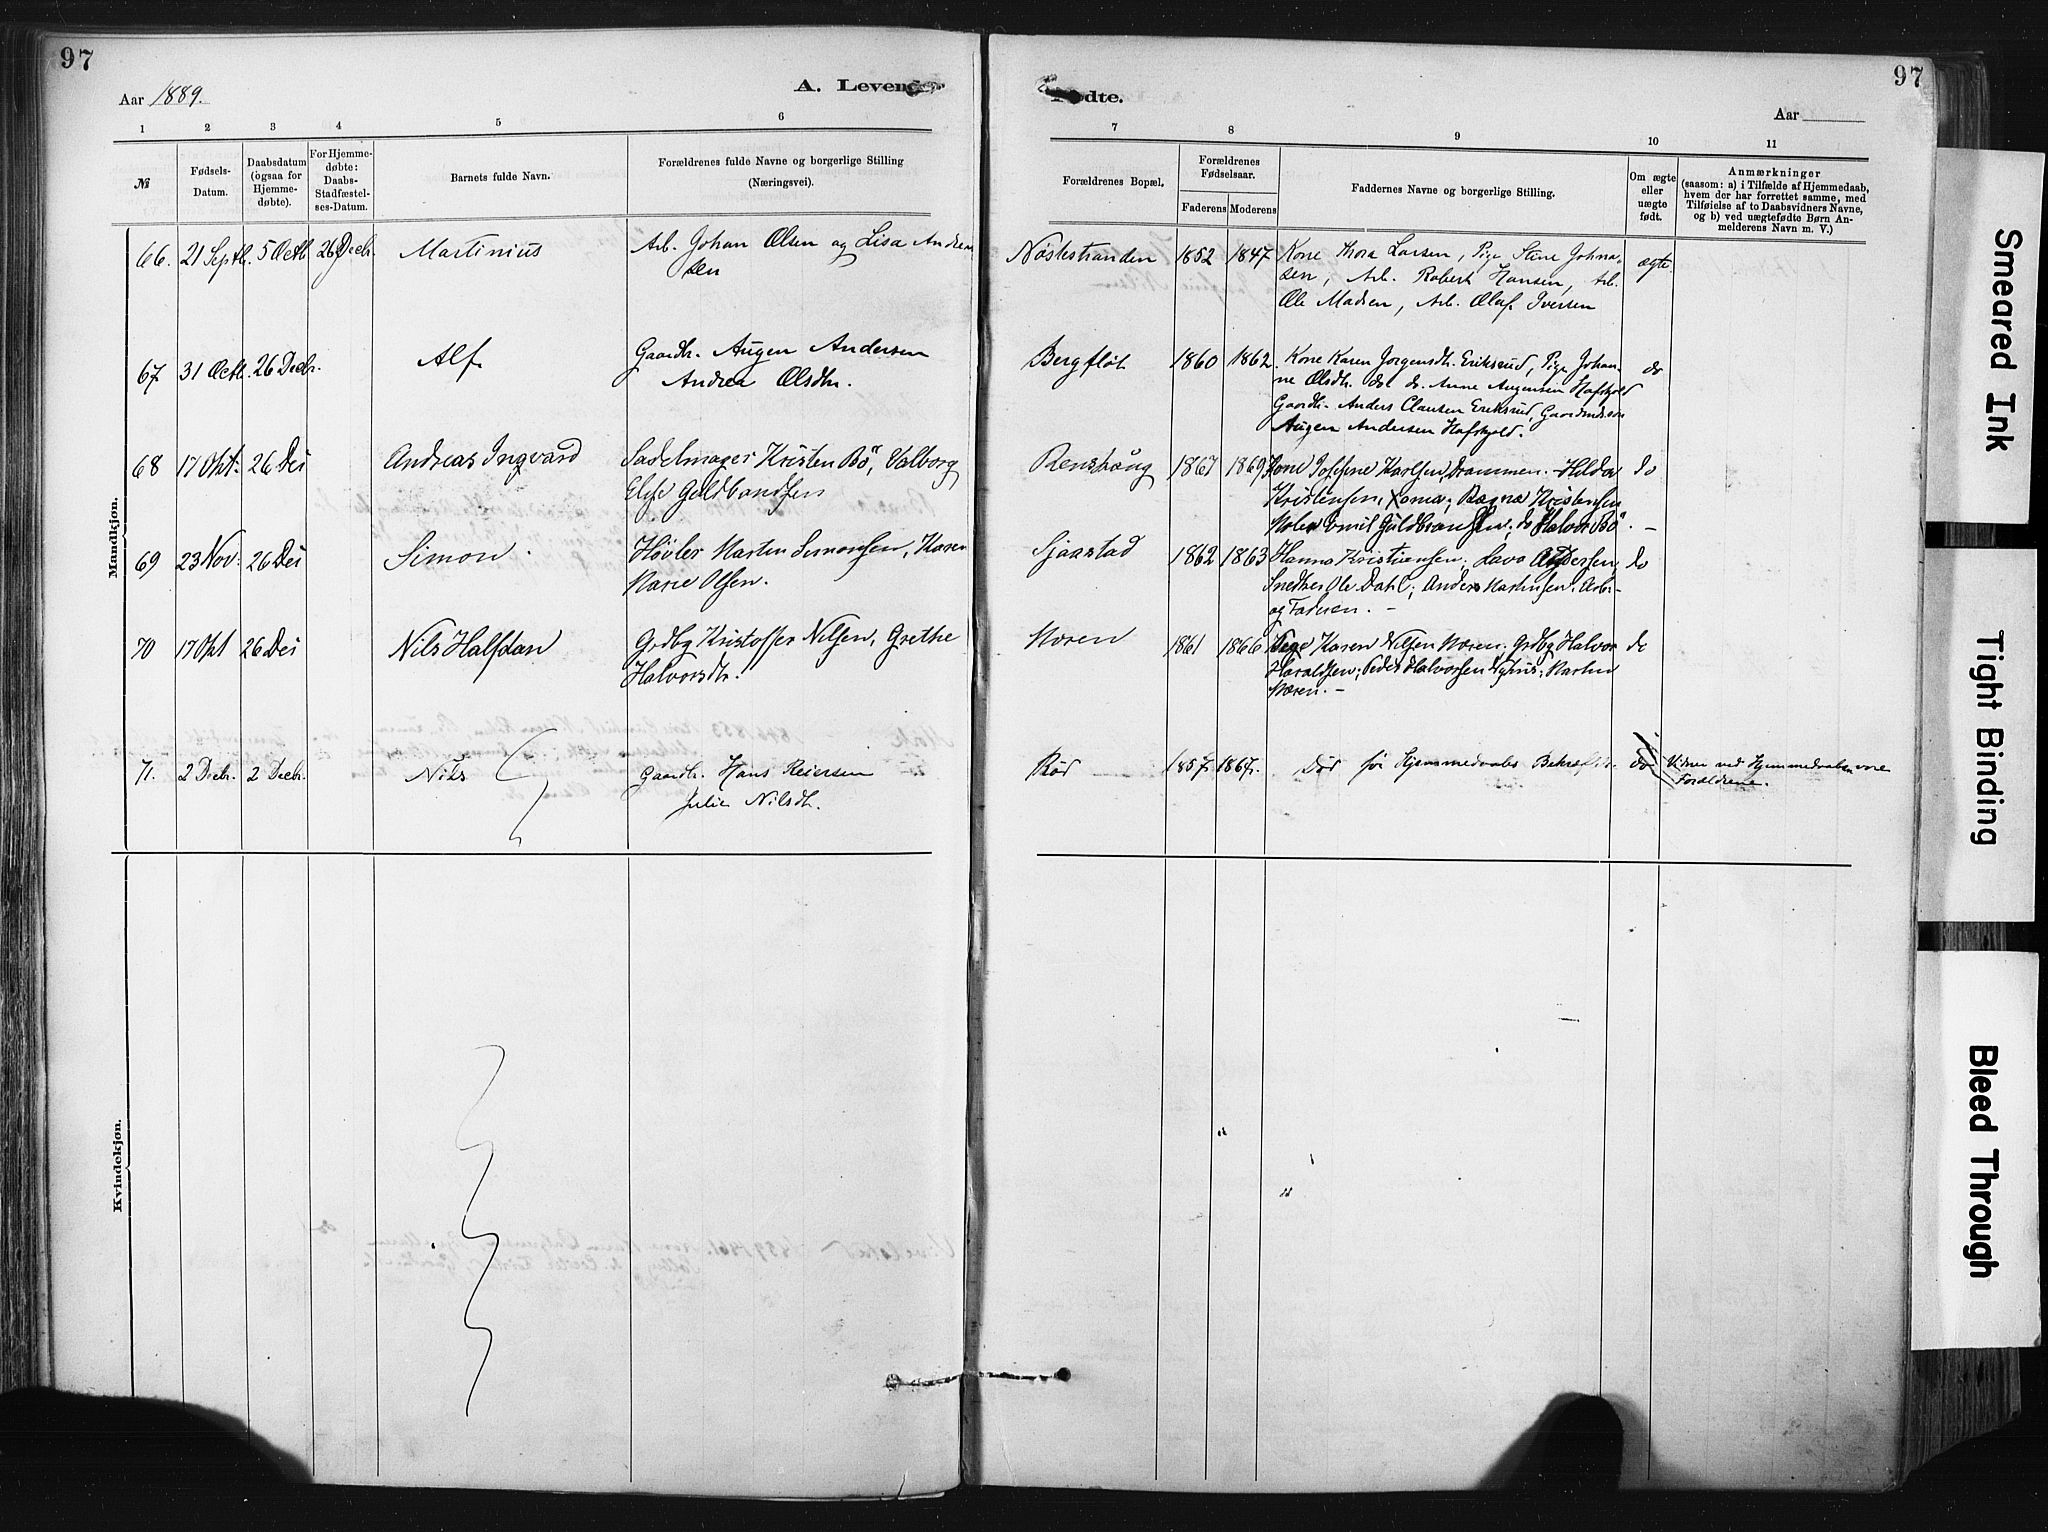 97
97
Aar 1889.
A. Levende
Fødte.
Aar
1 2 3 4 5 6 7 8 9 10 11
№
Fødsels-
Datum.
Daabsdatum
(ogsaa for
Hjemme-
døbte).
For Hjemme-
døbte:
Daabs-
Stadfæstel-
ses-Datum.
Barnets fulde Navn.
Forældrenes fulde Navne og borgerlige Stilling
(Næringsvei).
Forældrenes Bopæl.
Forældrenes
Fødselsaar.
Faderens Moderens
Faddernes Navne og borgerlige Stilling.
Om ægte
eller
uægte
født.
Anmærkninger
(saasom: a) i Tilfælde af Hjemmedaab,
hvem der har forrettet samme, med
Tilføielse af to Daabsvidners Navne,
og b) ved uægtefødte Børn An-
melderens Navn m. V.)
Mandkjøn.
66. 21 Septb. 5 Octb 26 Decbr. Martinius
Arb. Johan Olsen og Lisa Andrea-
sen
Nøstestranden 1852 1847
Kone Thora Larsen, Pige Stine Johna-
sen, Arb. Robert Hansen, Arb.
Ole Madsen, Arb. Olaf Iversen
ægte
67 31 Octb. 26 Decbr. Alf.
Gaardbr. Augen Andersen
Andrea Olsdtr.
Bergfløt 1860 1862
Kone Karen Jorgensdtr. Eriksrud, Pige Johan-
ne Olsdtr. do do. Anne Augensen Hafskjold
Gaardbr. Anders Clausen Eriksrud, Gaardmandssøn
Augen Andersen Hafskjold.
do
68 17 Okt. 26 Des Andreas Ingvard
Sadelmager Kristen Bö, Valborg
Elise Guldbrandsen
Renskaug 1867 1869
Kone Josefine Karlsen, Drammen. Hilda
Kristensen, Ragna Kristensen
Emil Guldbrandsen, do Halvor Bö. —
do
69 23 Nov. 26 Des Simon.
Høvler Martin Simonsen, Karen
Marie Olsen.
Sjaastad 1862 1863
Hanna Kristiansen. Lava Andersen,
Snedker Ole Dahl; Anders Martinsen Arb.
og Faderen. —
do
70 17 Okt 26 Des Nils Halfdan
Grdbg Kristoffer Nilsen, Grethe
Halvorsdtr.
Noren 1861 1866
Pige Karen Nilsen Noren. Grdbg Halvor
Haraldsen; Peder Halvorsen Nyhus; Martin
Noren. —
do
71. 2 Decbr. 2 Decbr. Nils
Gaardbr. Hans Reiersen
Julie Nilsdtr.
Röd 1857. 1867.
Död før Hjemmedaabes Bekræft.
do
Vidner ved Hjemmedaaben vare
Forældrene.
Kvindekjøn.
Smeared Ink
Tight Binding
Bleed Through